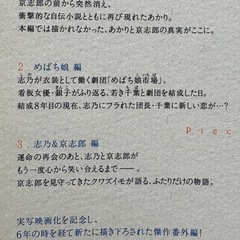 京志郎の前から突然消え、
衝撃的な自伝小説とともに再び現れたあかり。
本編では描かれなかった、あかりと京志郎の真実がここに。
2. めばち娘 編
志乃が衣装として働く劇団「めばち娘市場」。
看板女優・銀子がふり返る、若き千葉と劇団を結成した日。
結成8年目の現在、志乃にフラれた団長・千葉に新しい恋が…?
Piec
3. 志乃&京志郎 編
運命の再会のあと、志乃と京志郎が
もう一度心から笑い合えるまで――。
京志郎を見守ってきたクワズイモが語る、ふたりだけの物語。
実写映画化を記念し、
6年の時を経て新たに描き下ろされた傑作番外編!